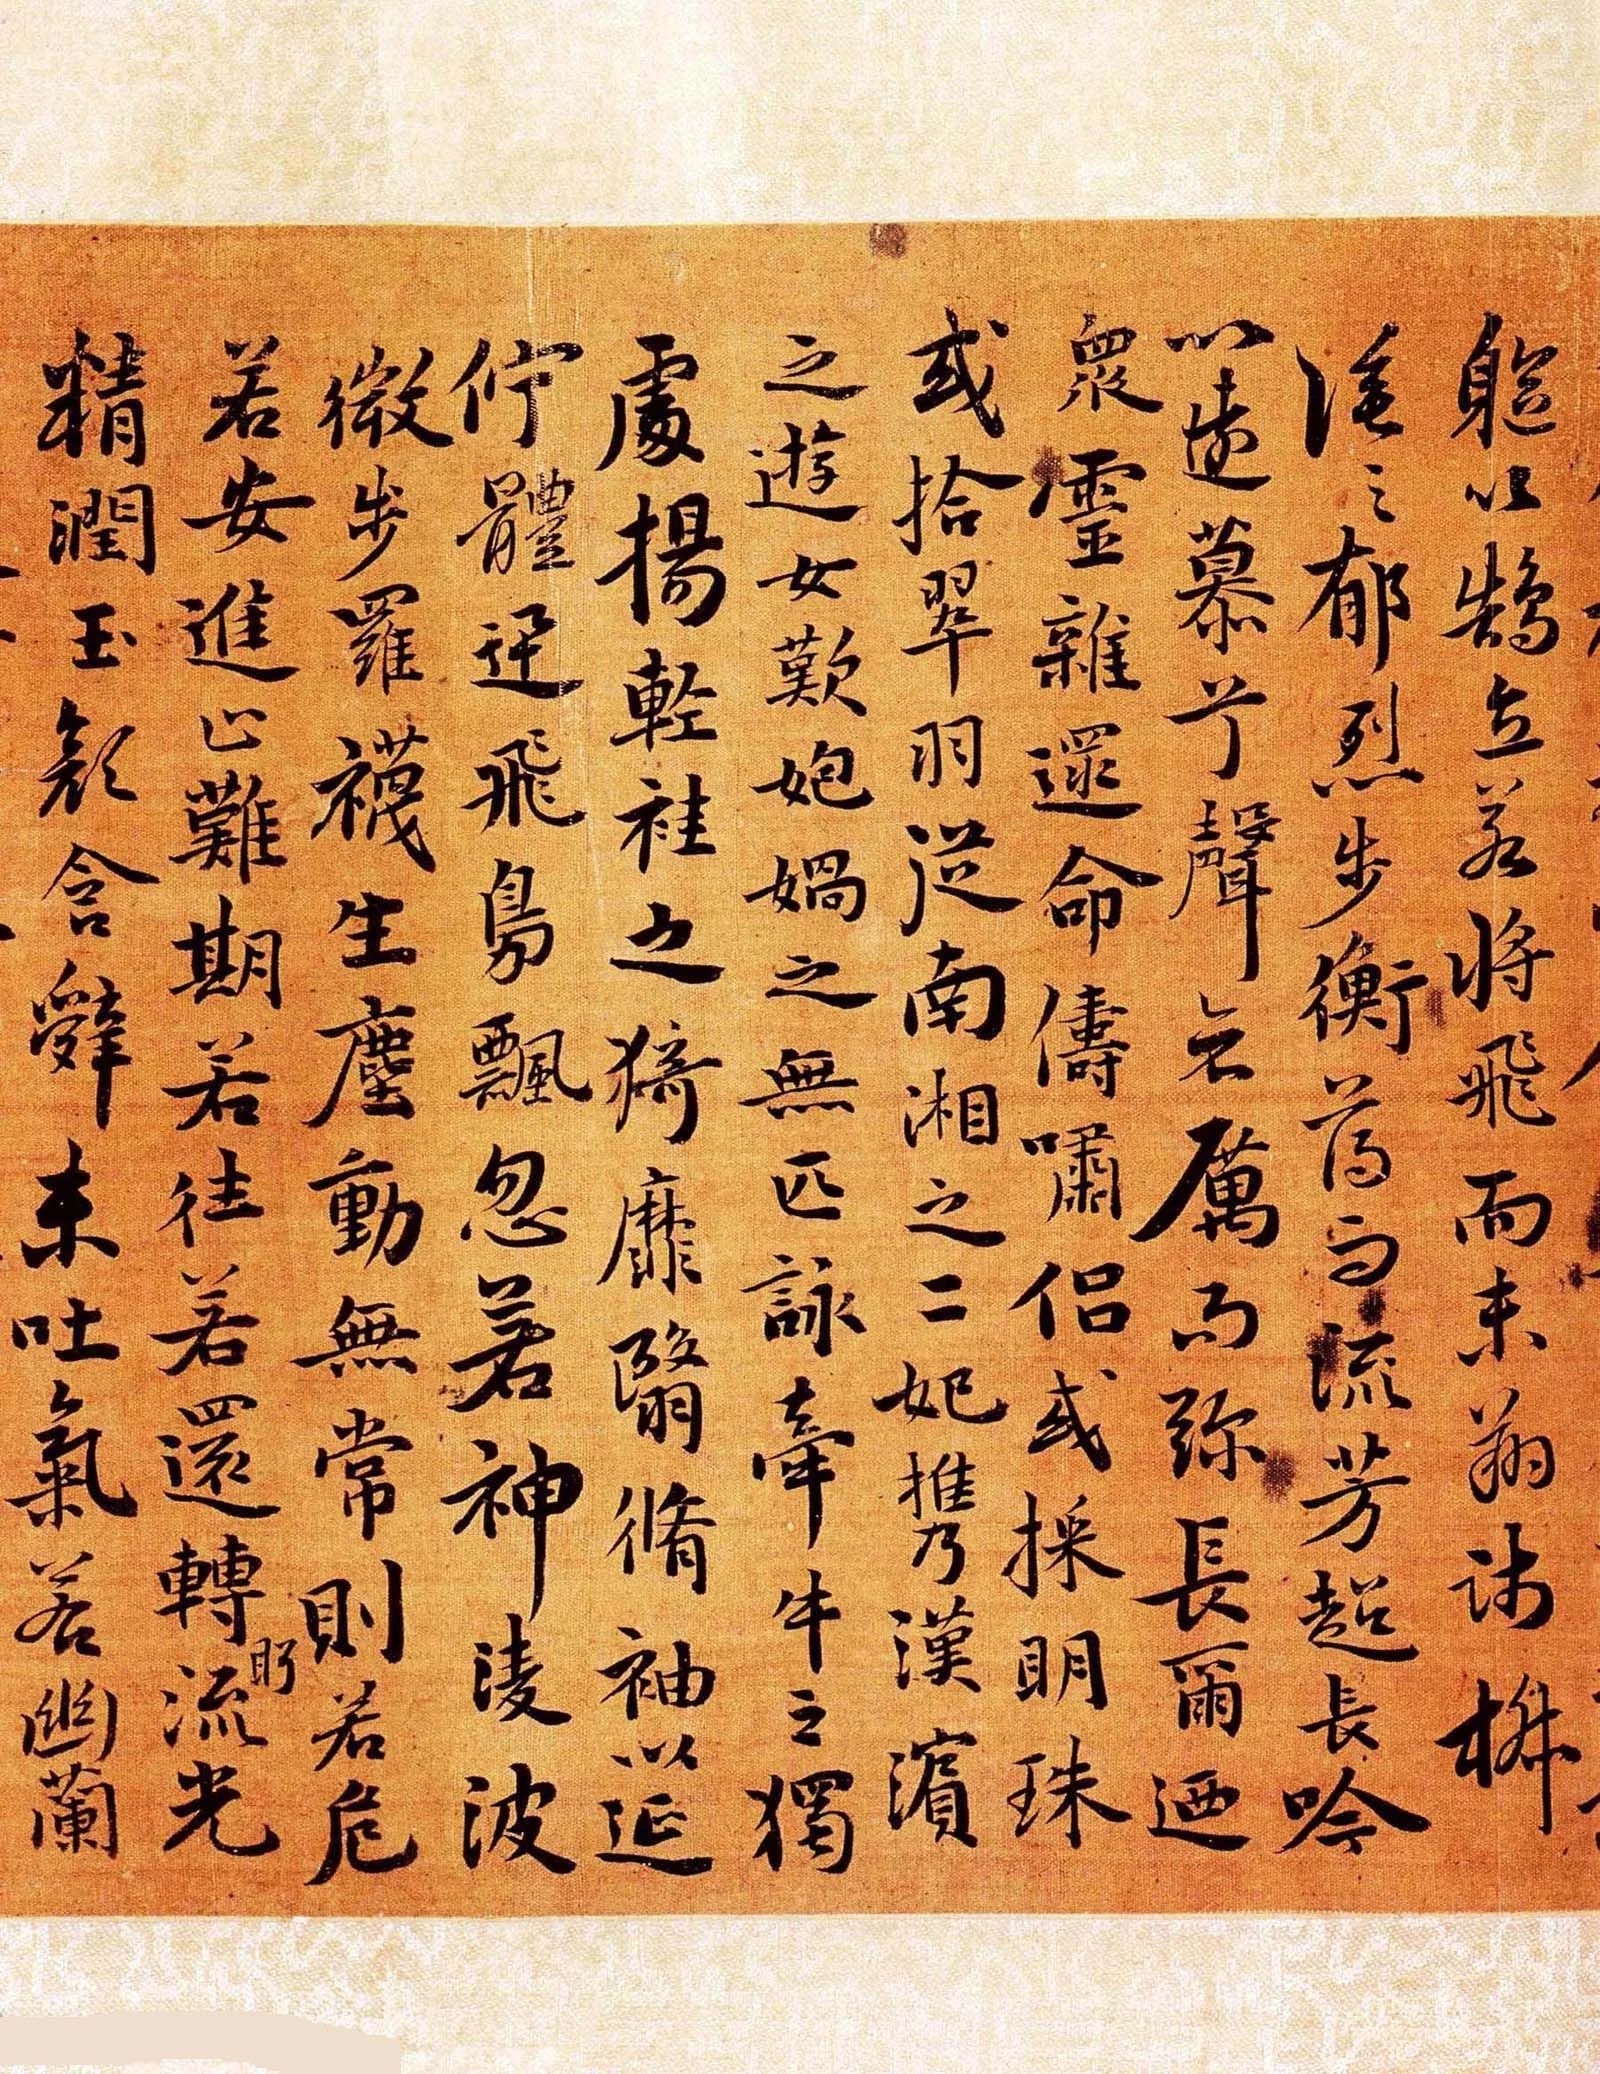 軀以鶴立若将飛而未翔踐椒
塗之郁烈步衡薄而流芳超長吟
以遠慕兮聲哀厲而弥長爾迺
衆靈雜遝命儔嘯侣或採明珠
或拾翠羽從南湘之二妃攜漢濱
之遊女歎匏媧之無匹詠牽牛之獨
處揚輕袿之猗靡翳脩袖以延
佇體迅飛鳧飄忽若神淩波
微步羅襪生塵動無常則若危
若安進止難期若往若還轉眄流光
精潤玉顏含辭未吐氣若幽蘭